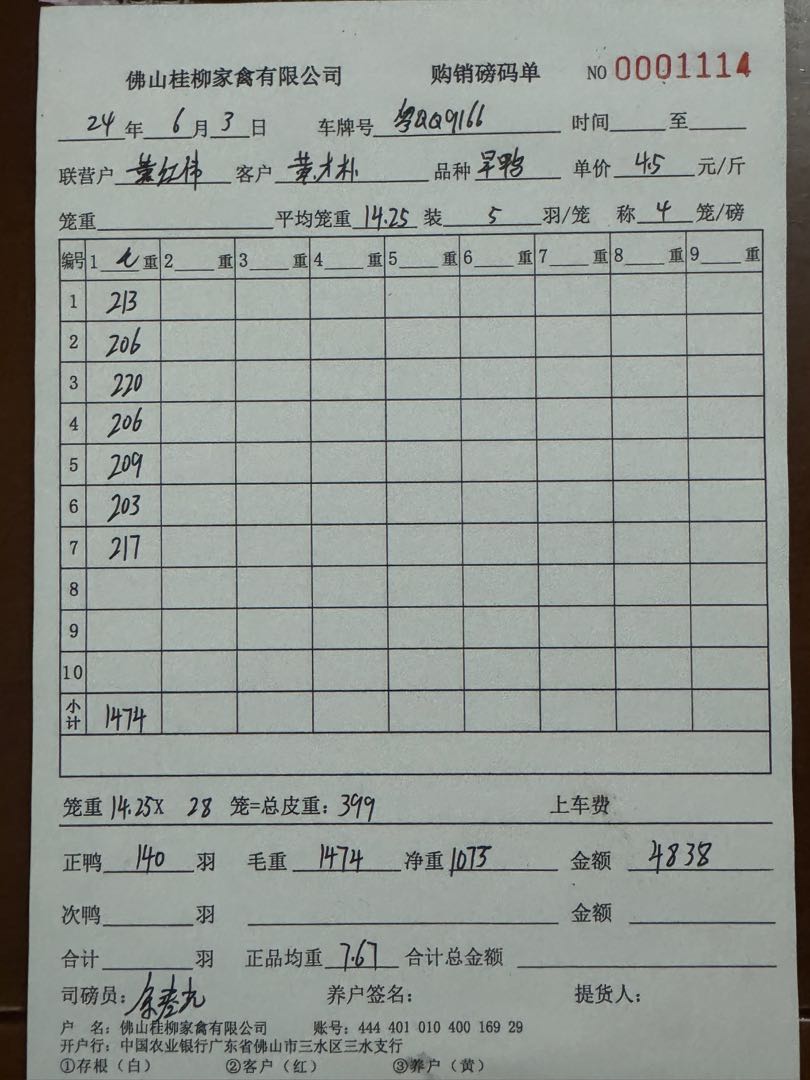 佛山桂柳家禽有限公司 购销磅码单 NO 0001114
24 年 6 月 3 日 车牌号 粤QQ9166 时间 至
联营户 叶红伟 客户 黄才朴 品种 旱鸭 单价 4.5 元/斤
笼重 平均笼重 14.25 装 5 羽/笼 称 4 笼/磅
编号 1 毛 重 2 重 3 重 4 重 5 重 6 重 7 重 8 重 9 重
1 213
2 206
3 220
4 206
5 209
6 203
7 217
8
9
10
小计 1474
笼重 14.25X 28 笼=总皮重: 399 上车费
正鸭 140 羽 毛重 1474 净重 1075 金额 4838
次鸭 羽 金额
合计 羽 正品均重 7.67 合计总金额
司磅员: 养户签名: 提货人:
户 名: 佛山桂柳家禽有限公司 账号: 444 401 010 400 169 29
开户行: 中国农业银行广东省佛山市三水区三水支行
①存根(白) ②客户(红) ③养户(黄)